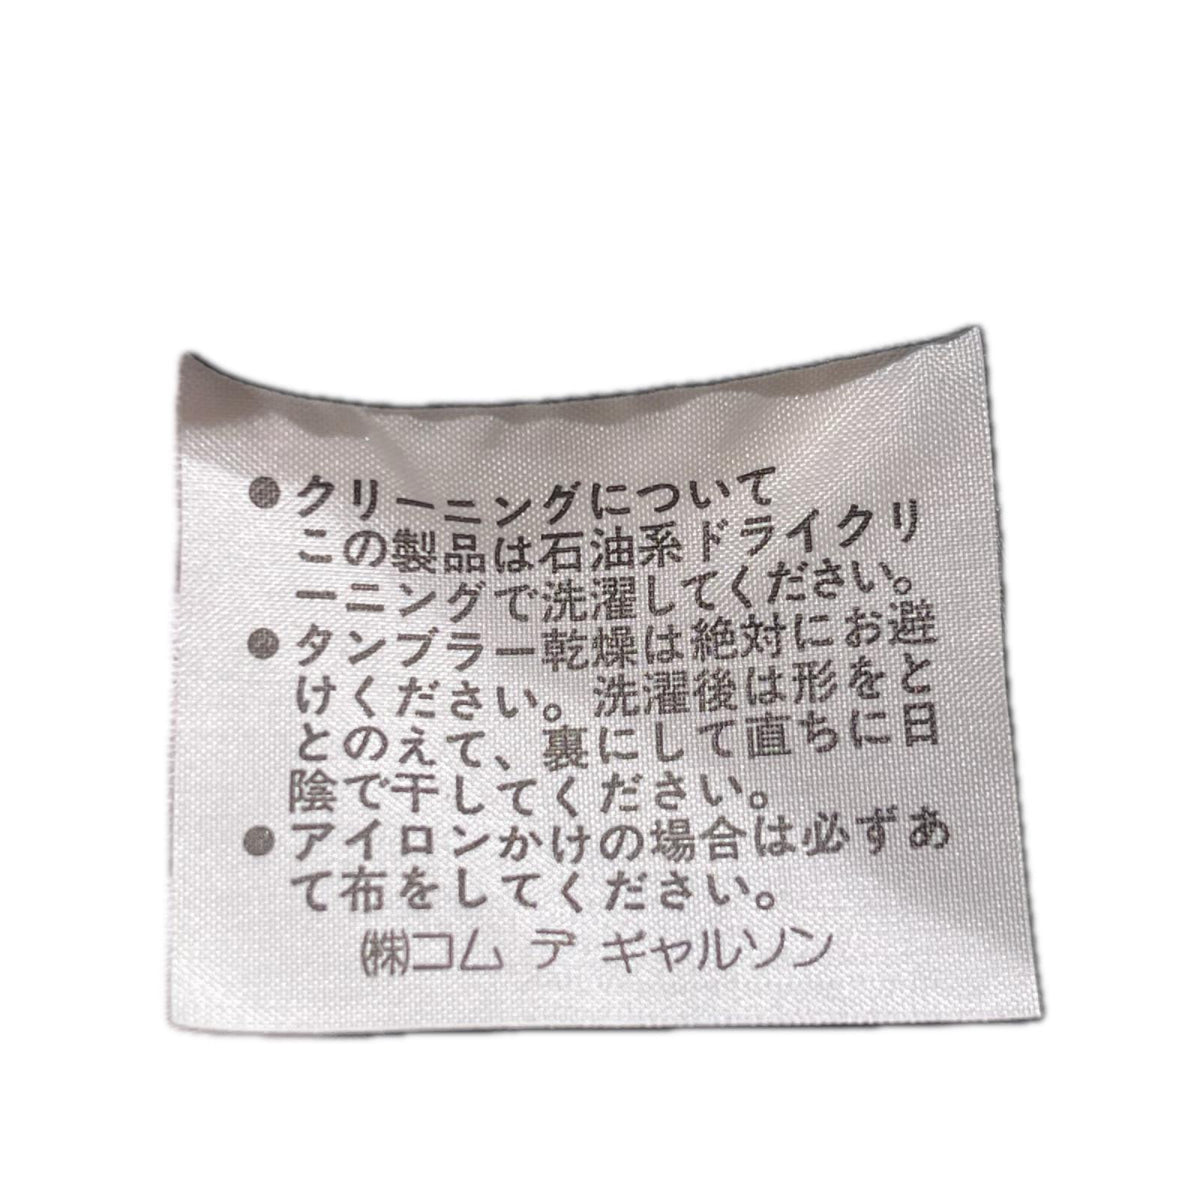 ●クリーニングについて
この製品は石油系ドライクリ
ーニングで洗濯してください。
●タンブラー乾燥は絶対にお避
けください。洗濯後は形をと
とのえて、裏にして直ちに日
陰で干してください。
●アイロンかけの場合は必ずあ
て布をしてください。
㈱コム デ ギャルソン